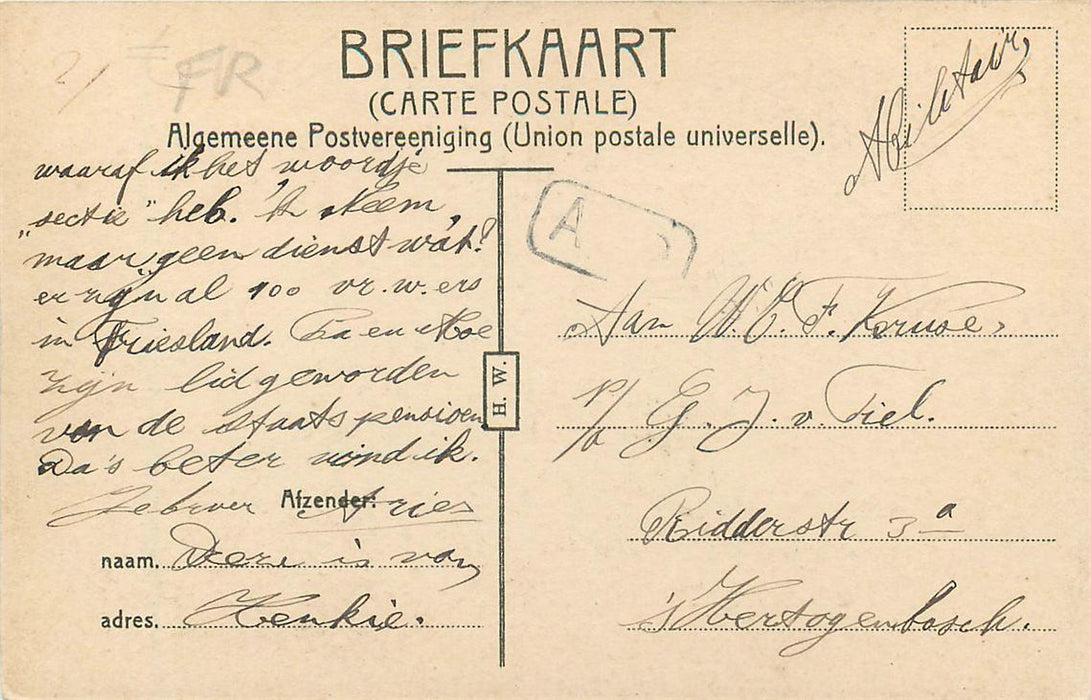 21
FR
BRIEFKAART
(CARTE POSTALE)
Algemeene Postvereeniging (Union postale universelle).
Militair
waaraf ik het woordje
"sectie" heb. 'k Neem
maar geen dienst wàt?
er zijn al 100 vr. w. ers
in Friesland. Pa en Moe
zijn lid geworden
van de staatspensioen
Da's beter vind ik.
Je broer Aries
Afzender:
naam. Deze is van
adres. Henkie.
H. W.
A
Aan W. C. F. Kruse,
p/a G. J. v. Tiel.
Ridderstr 3a
's Hertogenbosch.